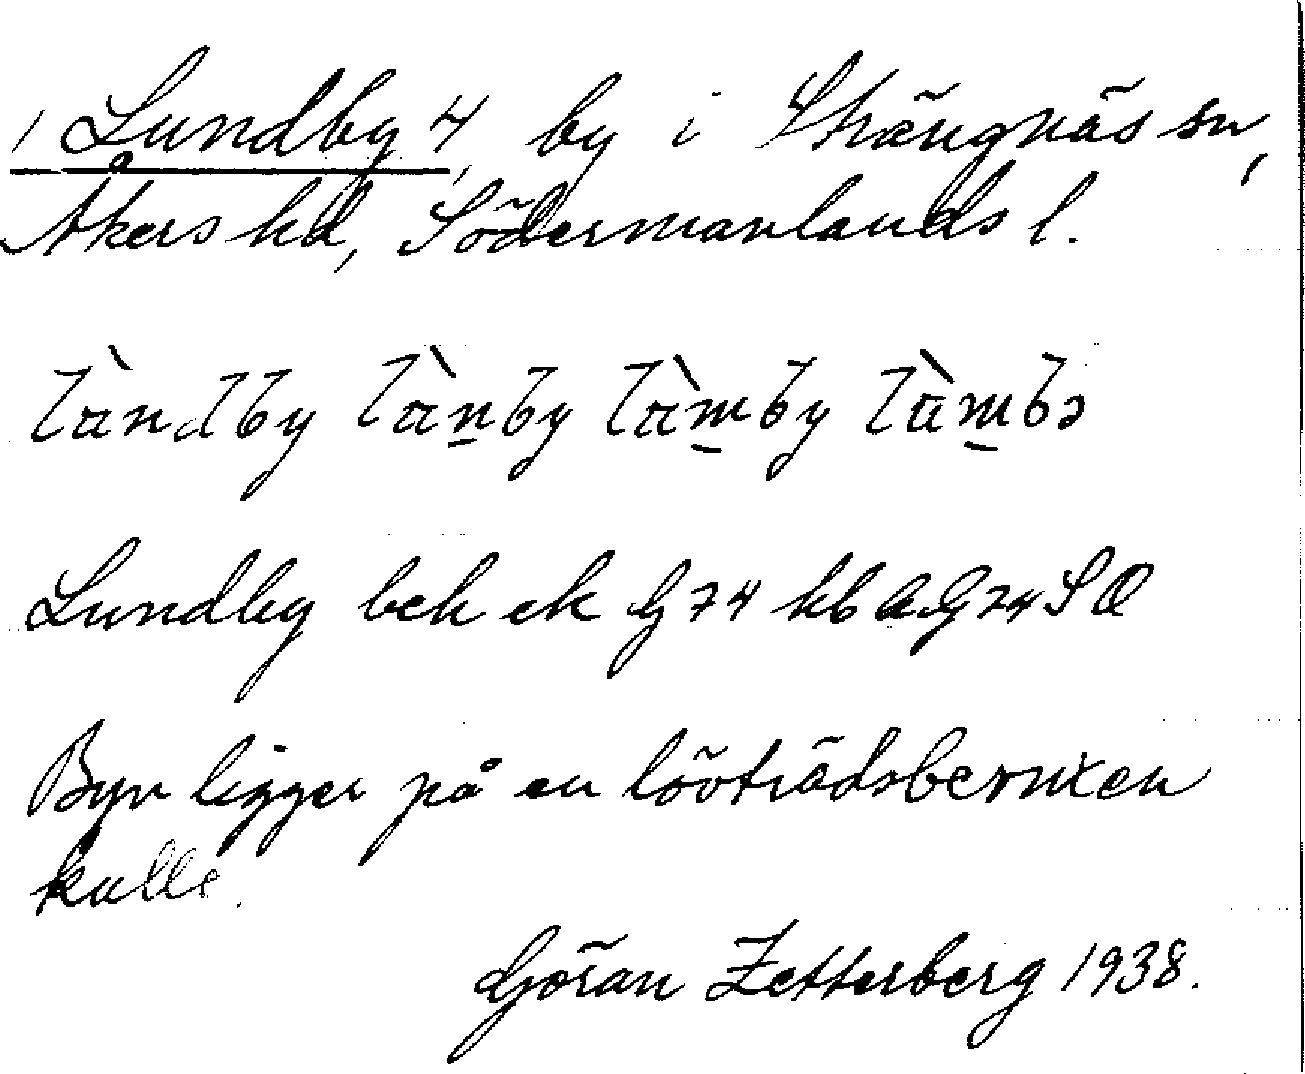 1 Lundby 4, by i Strängnäs sn,
Åkers hd, Södermanlands l.
lùndby lùnby lùmby lùmbə
Lundby bek ek G 74 kb a G 74 SO
Byn ligger på en lövträdsbevuxen
kulle.
Göran Zetterberg 1938.